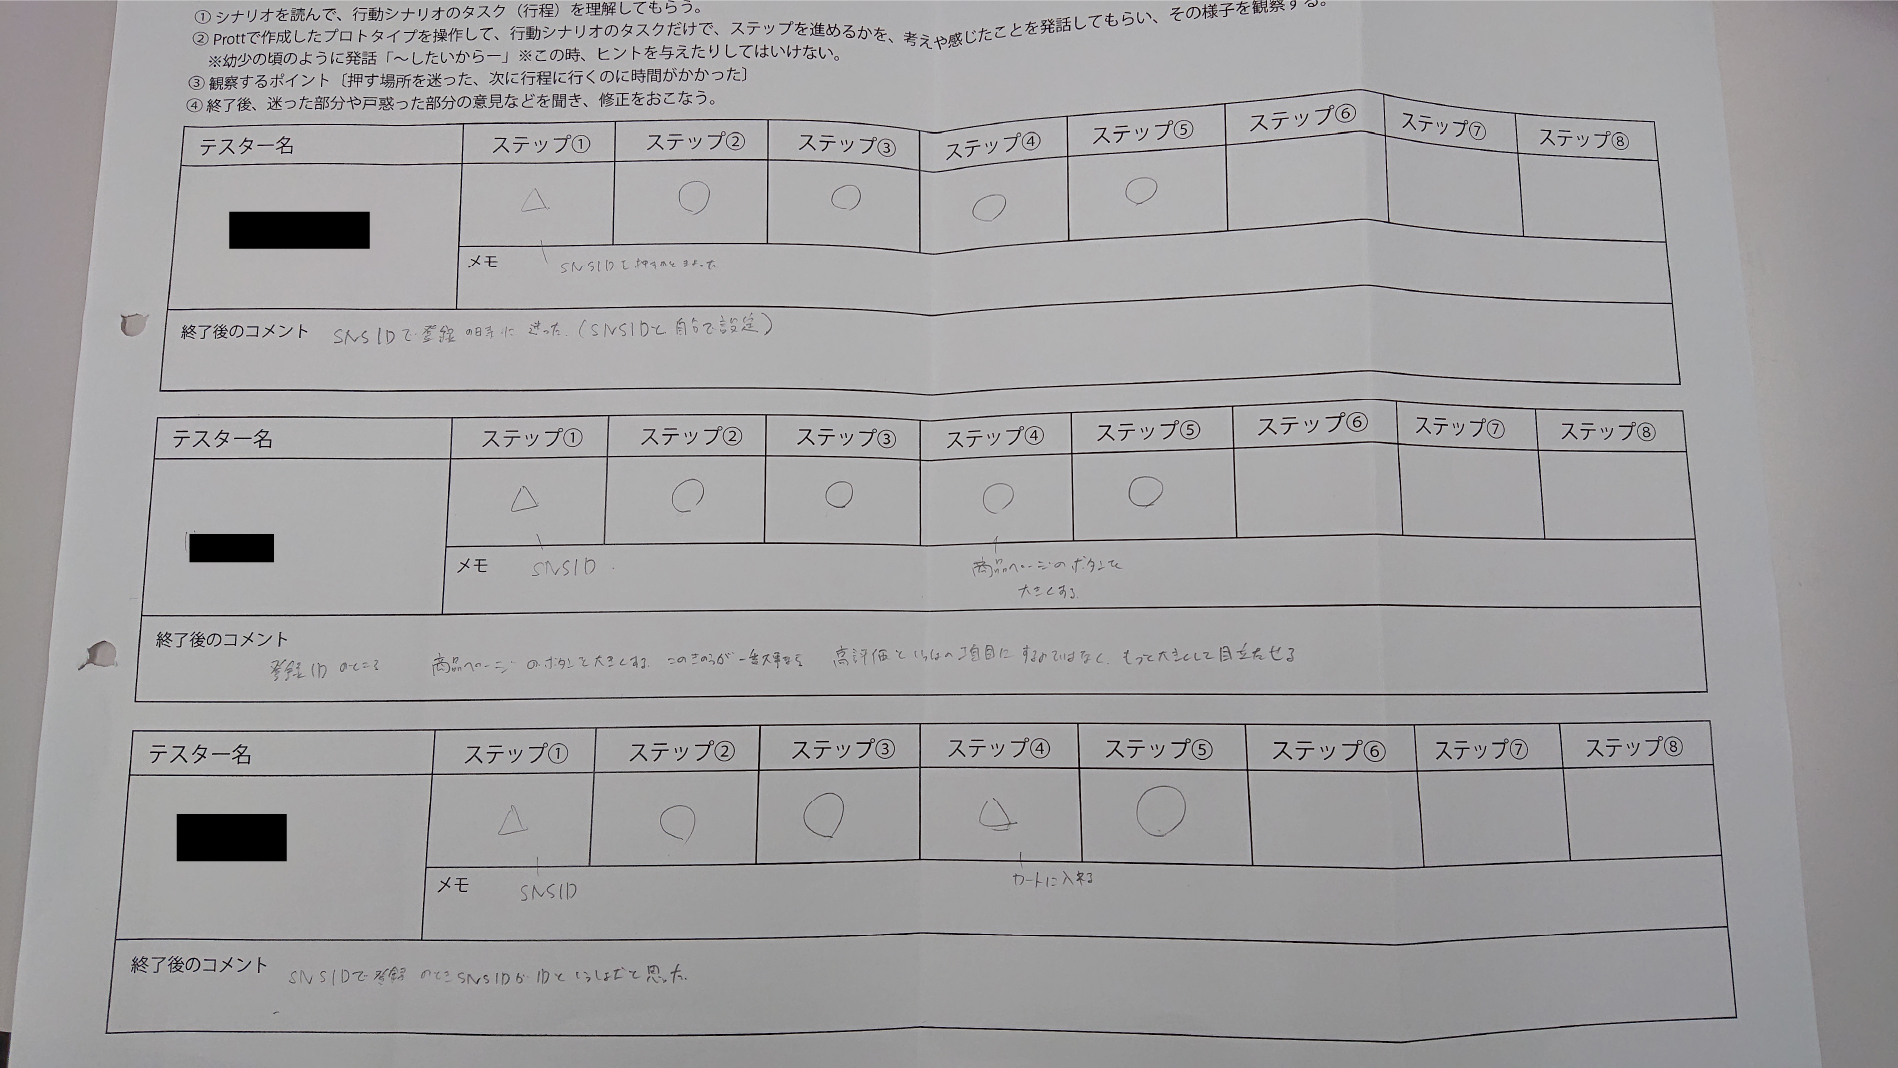 ① シナリオを読んで、行動シナリオのタスク（行程）を理解してもらう。
② Prottで作成したプロトタイプを操作して、行動シナリオのタスクだけで、ステップを進めるかを、考えや感じたことを発話してもらい、その様子を観察する。
※幼少の頃のように発話「〜したいからー」※この時、ヒントを与えたりしてはいけない。
③ 観察するポイント〔押す場所を迷った、次に行程に行くのに時間がかかった〕
④ 終了後、迷った部分や戸惑った部分の意見などを聞き、修正をおこなう。
テスター名 ステップ① ステップ② ステップ③ ステップ④ ステップ⑤ ステップ⑥ ステップ⑦ ステップ⑧
△ ○ ○ ○ ○
メモ SNSID
終了後のコメント SNSIDで登録の時に迷った.(SNSIDと自分で設定)
テスター名 ステップ① ステップ② ステップ③ ステップ④ ステップ⑤ ステップ⑥ ステップ⑦ ステップ⑧
△ ○ ○ ○ ○
メモ SNSID 商品ページのボタンを
大きくする.
終了後のコメント
登録IDのところ 商品ページのボタンを大きくする. このきのうが一番大事なら 高評価といっしょの項目にするのではなく、もっと大きくして目立たせる
テスター名 ステップ① ステップ② ステップ③ ステップ④ ステップ⑤ ステップ⑥ ステップ⑦ ステップ⑧
△ ○ ○ △ ○
メモ SNSID カートに入れる
終了後のコメント SNSIDで登録のときSNSIDがIDといっしょだと思った.